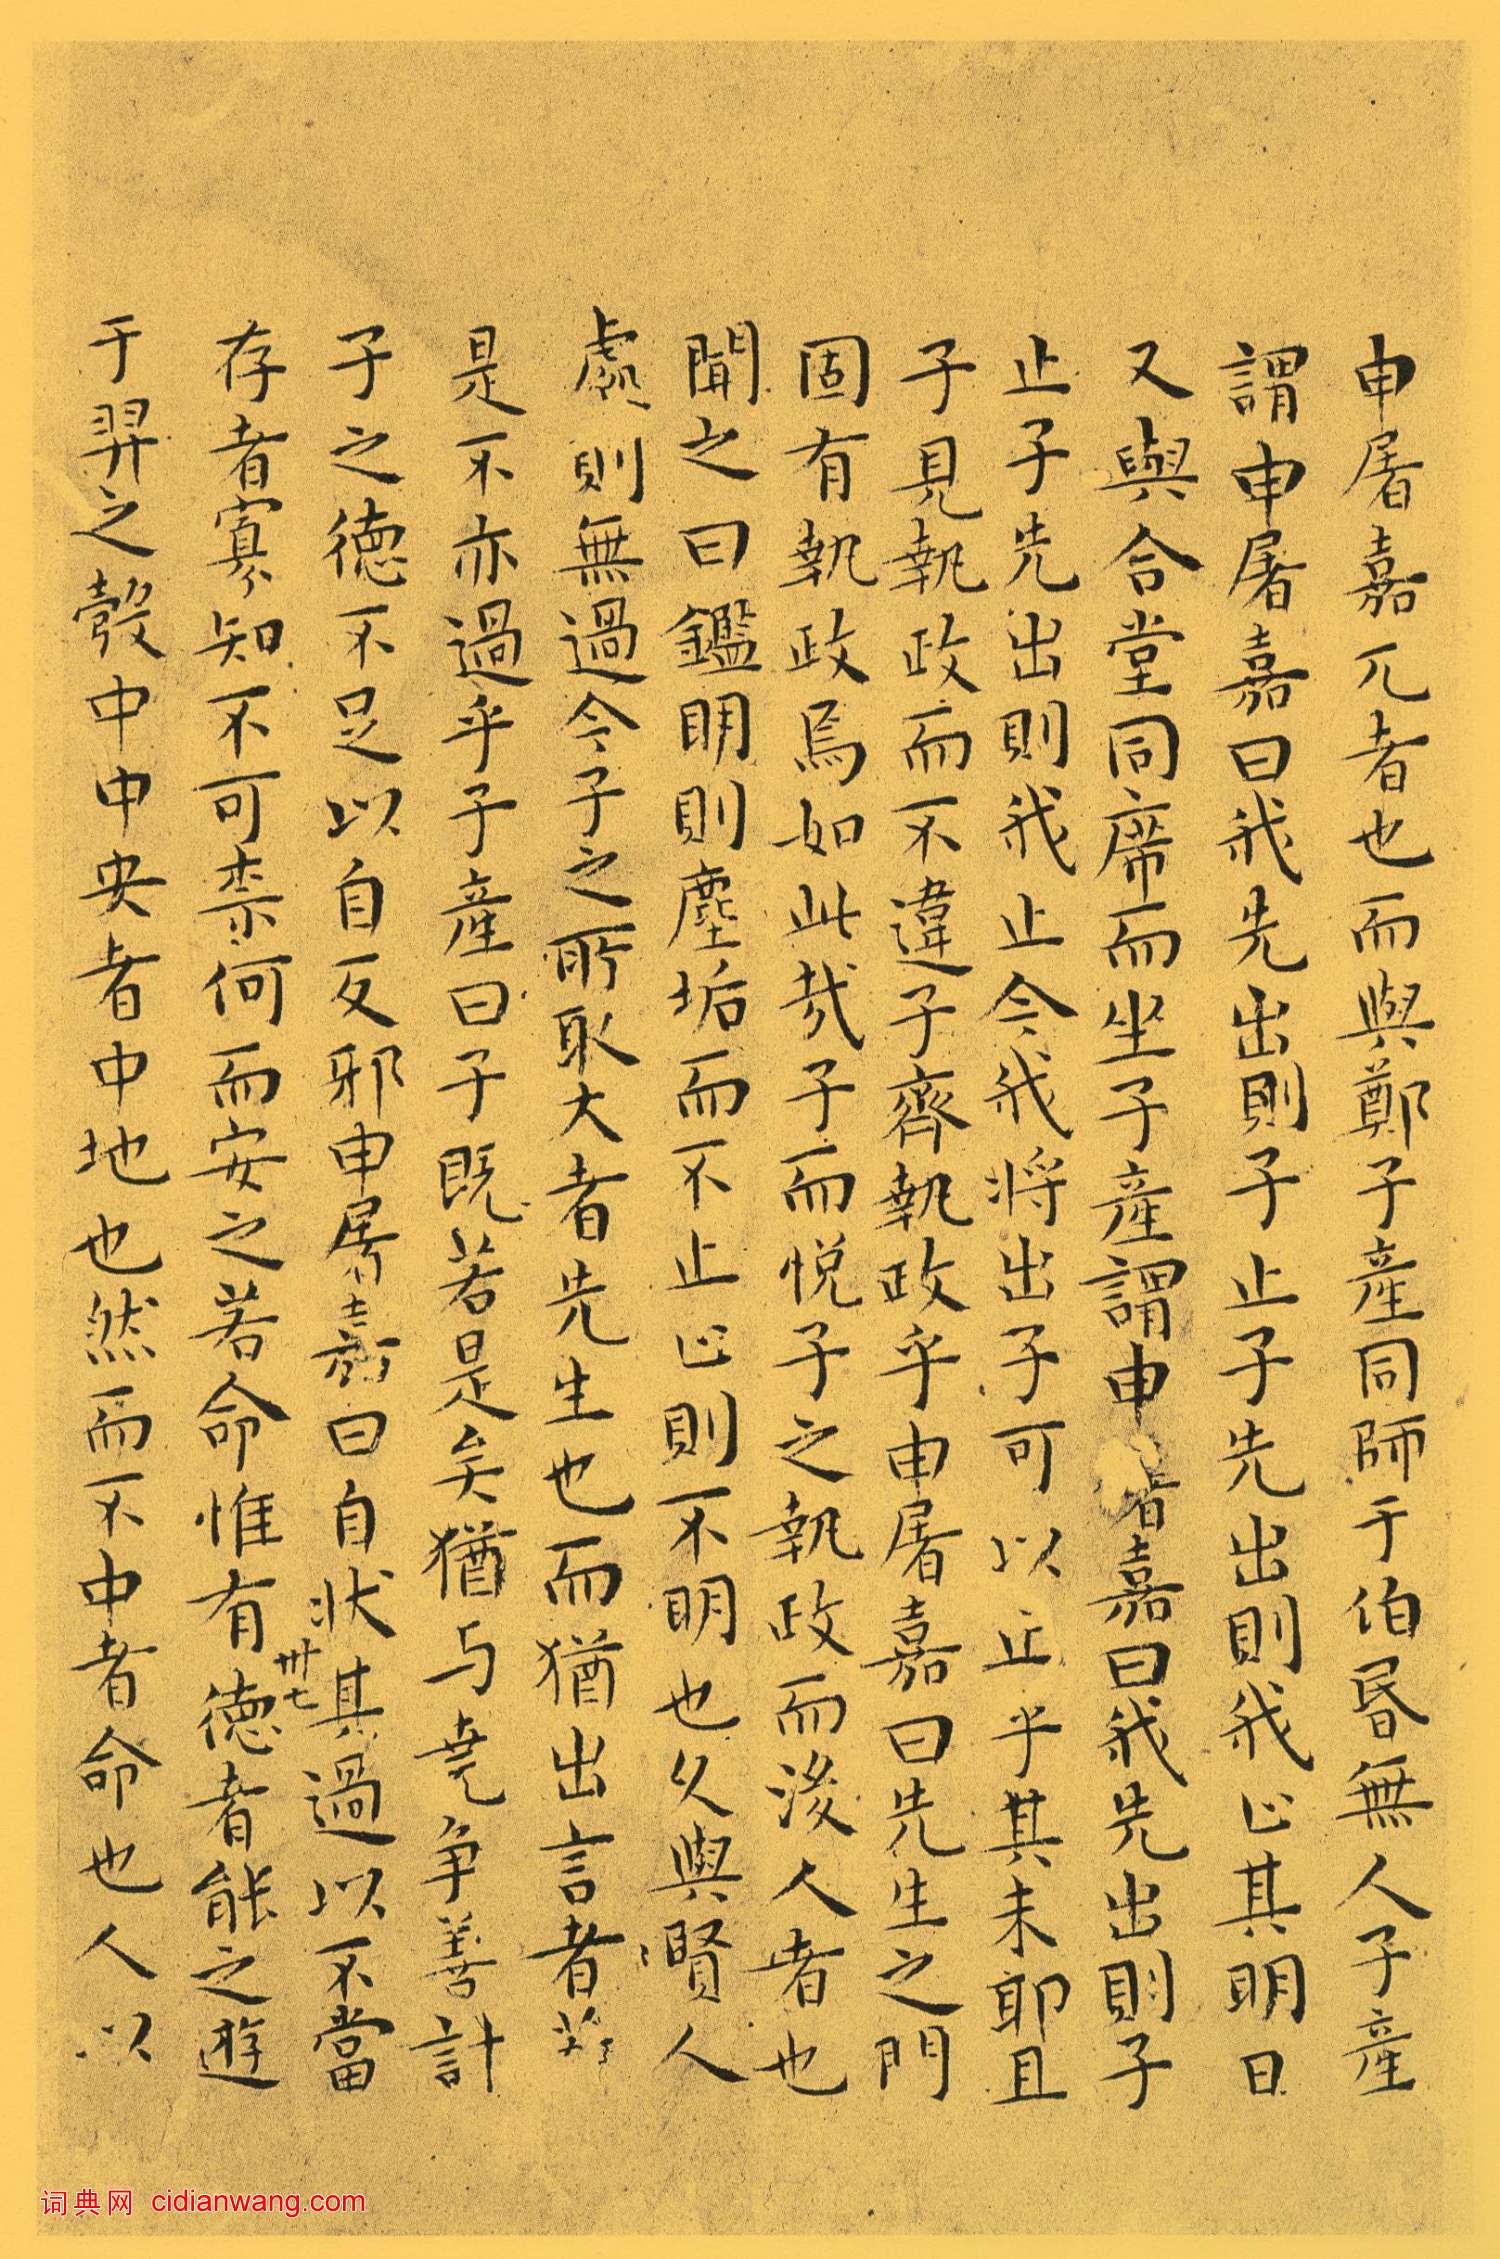 申屠嘉兀者也而與鄭子產同師于伯昏無人子產
謂申屠嘉曰我先出則子止子先出則我止其明日
又與合堂同席而坐子產謂申屠嘉曰我先出則子
止子先出則我止今我將出子可以止乎其未耶且
子見執政而不違子齊執政乎申屠嘉曰先生之門
固有執政焉如此哉子而悅子之執政而後人者也
聞之曰鑑明則塵垢而不止止則不明也久與賢人
處則無過今子之所取大者先生也而猶出言者
是不亦過乎子產曰子既若是矣猶与堯争善計
子之德不足以自反邪申屠嘉曰自状其過以不當
卅七
存者寡知不可柰何而安之若命惟有德者能之遊
于羿之彀中中央者中地也然而不中者命也人以
词典网 cidianwang.com